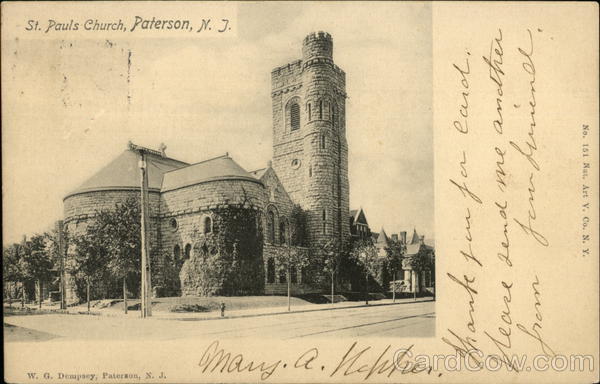 St. Pauls Church, Paterson, N. J.
Thank you for card.
Please send me another
from your friend.
No. 151 Nat. Art V. Co. N. Y.
W. G. Dempsey, Paterson, N. J.
Mary. A.
CardCow.com